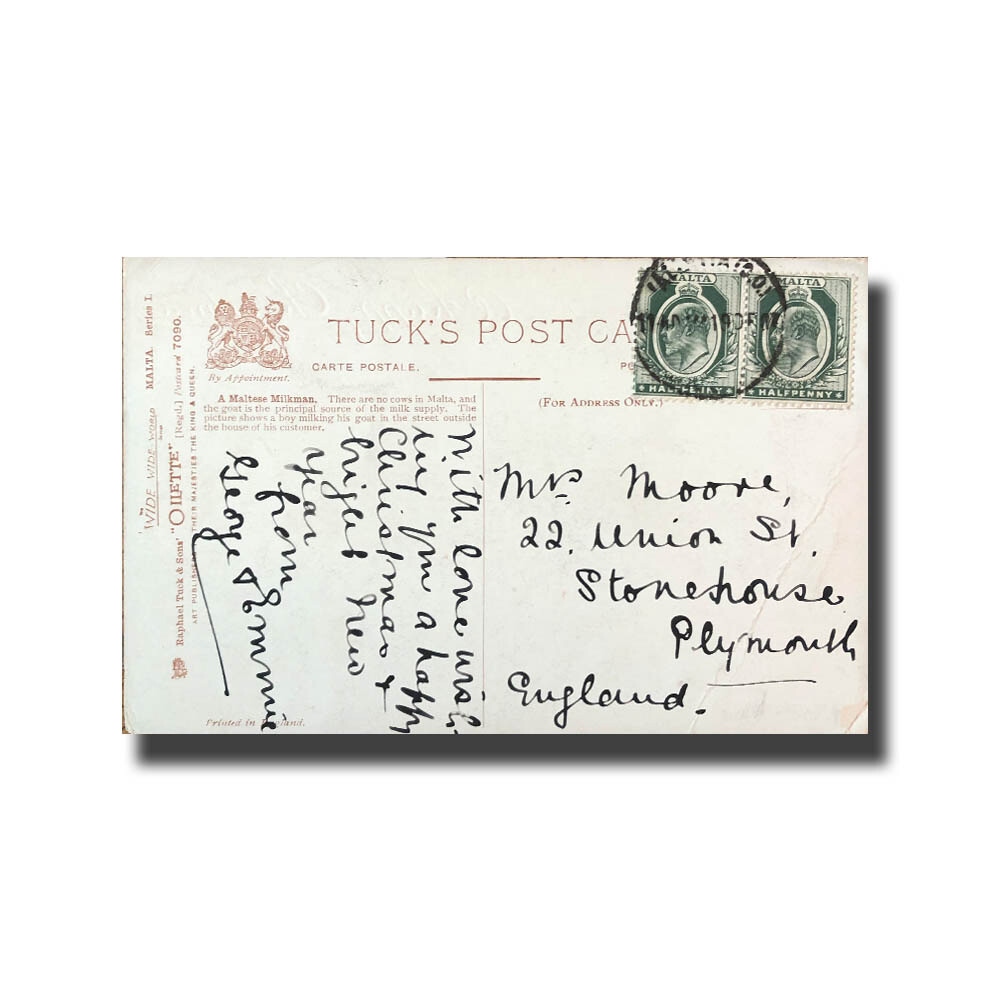 WIDE WIDE WORLD MALTA. Series I.
Raphael Tuck & Sons' "OILETTE" [Regd.] Postcard 7090.
ART PUBLISHERS THEIR MAJESTIES THE KING & QUEEN.
By Appointment.
TUCK'S POST CA
CARTE POSTALE.
(FOR ADDRESS ONLY.)
A Maltese Milkman. There are no cows in Malta, and
the goat is the principal source of the milk supply. The
picture shows a boy milking his goat in the street outside
the house of his customer.
With love wish-
ing you a happy
Christmas &
bright New
Year
from
George & Emmie
Printed in England.
MALTA
HALFPENNY
MALTA
HALFPENNY
Mrs Moore,
22, Union St.
Stonehouse
Plymouth
England.